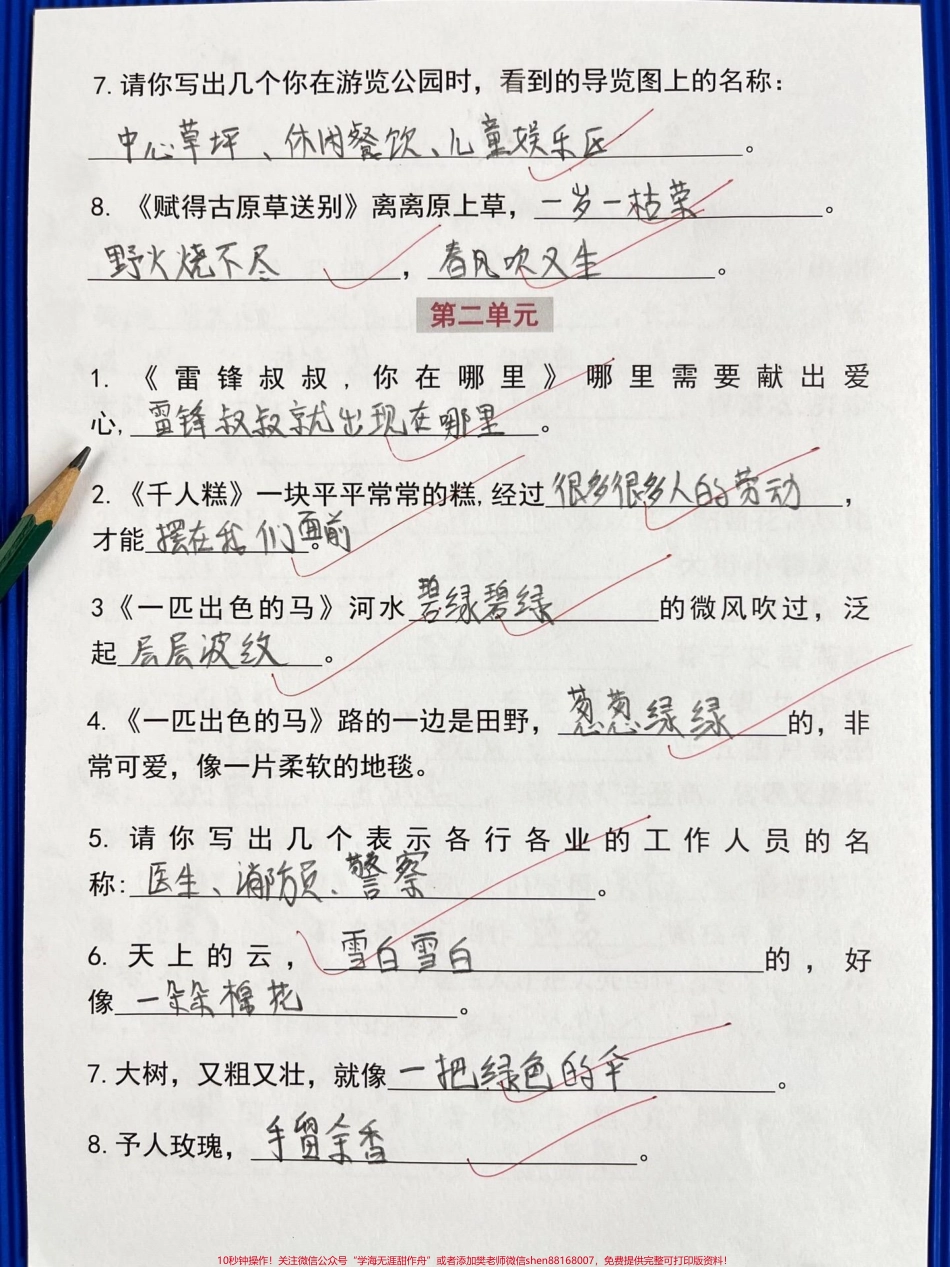 7.请你写出几个你在游览公园时，看到的导览图上的名称：
中心草坪、休闲餐饮、儿童娱乐区。
8.《赋得古原草送别》离离原上草，一岁一枯荣。
野火烧不尽，春风吹又生。
第二单元
1.《雷锋叔叔,你在哪里》哪里需要献出爱
心,雷锋叔叔就出现在哪里。
2.《千人糕》一块平平常常的糕,经过很多很多人的劳动，
才能摆在我们面前。
3《一匹出色的马》河水碧绿碧绿的微风吹过，泛
起层层波纹。
4.《一匹出色的马》路的一边是田野，葱葱绿绿的，非
常可爱，像一片柔软的地毯。
5.请你写出几个表示各行各业的工作人员的名
称:医生、消防员、警察。
6.天上的云，雪白雪白的，好
像一朵朵棉花。
7.大树，又粗又壮，就像一把绿色的伞。
8.予人玫瑰，手留余香。
10秒钟操作！关注微信公众号“学海无涯甜作舟”或者添加樊老师微信shen88168007，免费提供完整可打印版资料！